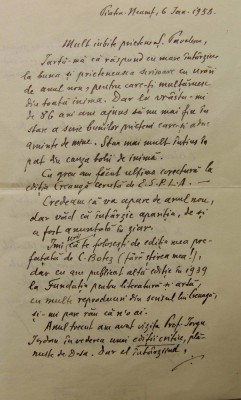 Piatra-Neamț, 6 Ian. 1958.
Mult iubite prietene Pavelescu,
Iartă-mă că răspund cu mare întârziere
la buna și prieteneasca scrisoare cu urări
de anul nou, pentru care-ți mulțumesc
din toată inima. Dar la vârsta mea
de 86 ani am ajuns să nu mai fiu în
stare a scrie bunilor prieteni care-și aduc
aminte de mine. Stau mai mult întins în
pat din cauza bolii de inimă.
Cu greu am făcut ultima corectură la
ediția Creangă cerută de E.S.P.L.A. —
Credeam că va apare de anul nou,
dar văd că întârzie apariția, de și
a fost anunțată în ziar.
Îmi scrii că te folosești de ediția mea pre-
fațată de C. Botez (fără știrea mea!),
dar eu am publicat altă ediție în 1939
la Fundația pentru literatură și artă,
cu multe reproduceri din scrisul lui Creangă,
și-mi pare rău că n'o ai.
Anul trecut am avut vizita Prof. Iorgu
Iordan în vederea unei ediții critice, plă-
nuite de D-sa. Dar el întârziind,